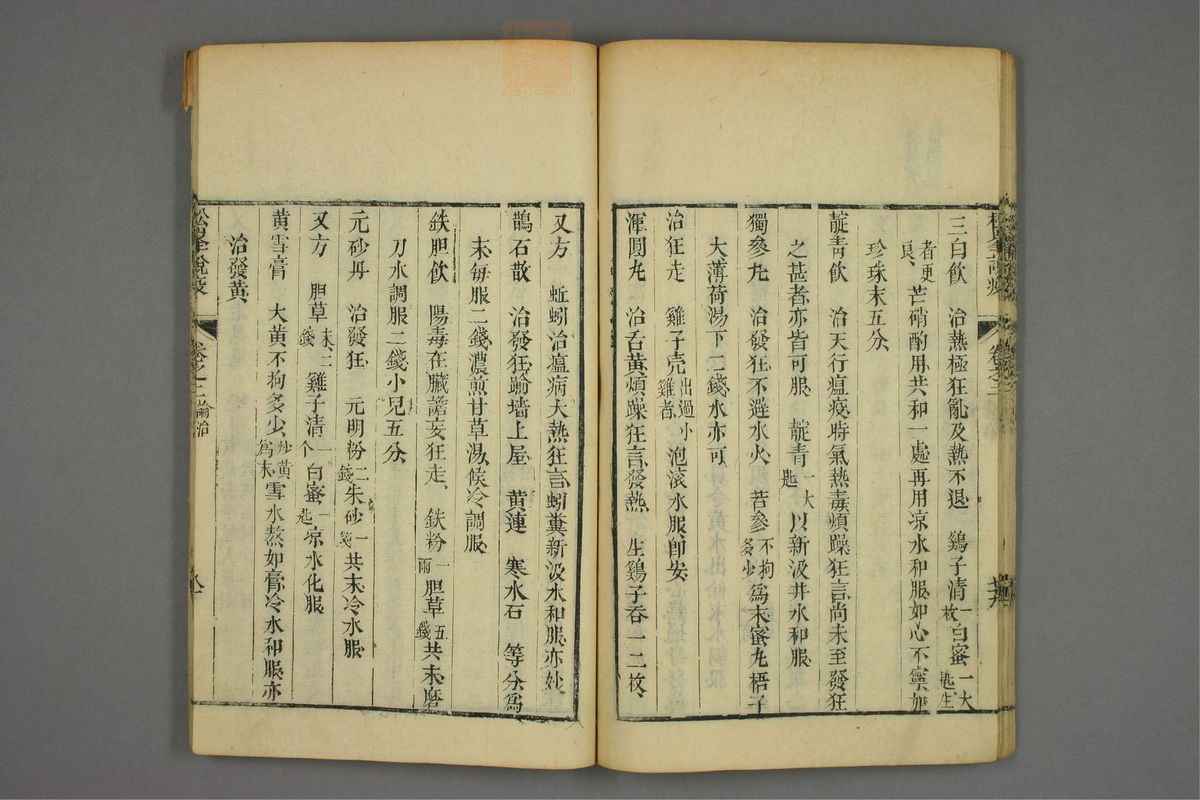 三白飲　治熱極狂亂及熱不退　鷄子清一枚白蜜一大匙生
者更良芒硝酌用共和一處再用凉水和服如心不寧加
珍珠末五分
靛青飲　治天行瘟疫時氣熱毒煩躁狂言尚未至發狂
之甚者亦皆可服　靛青一大匙以新汲井水和服
獨參丸　治發狂不避水火　苦參不拘多少為末蜜丸梧子
大薄荷湯下二錢水亦可
治狂走　雞子壳出過小雞者泡滾水服卽安
渾圓丸　治舌黄煩躁狂言發熱　生鷄子吞一二枚
又方　蚯蚓治瘟病大熱狂言蚓糞新汲水和服亦妙
鵲石散　治發狂踰墻上屋　黄連　寒水石　等分為
末每服二錢濃煎甘草湯候冷調服
鉄胆飲　陽毒在臟譫妄狂走　鉄粉一兩胆草五錢共末磨
刀水調服二錢小兒五分
元砂丹　治發狂　元明粉二錢朱砂一錢共末冷水服
又方　胆草末二錢雞子清一个白蜜一匙凉水化服
黄雪膏　大黄不拘多少炒黄為末雪水熬如膏冷水和服亦
治發黄
松峯說疫
卷之二論治